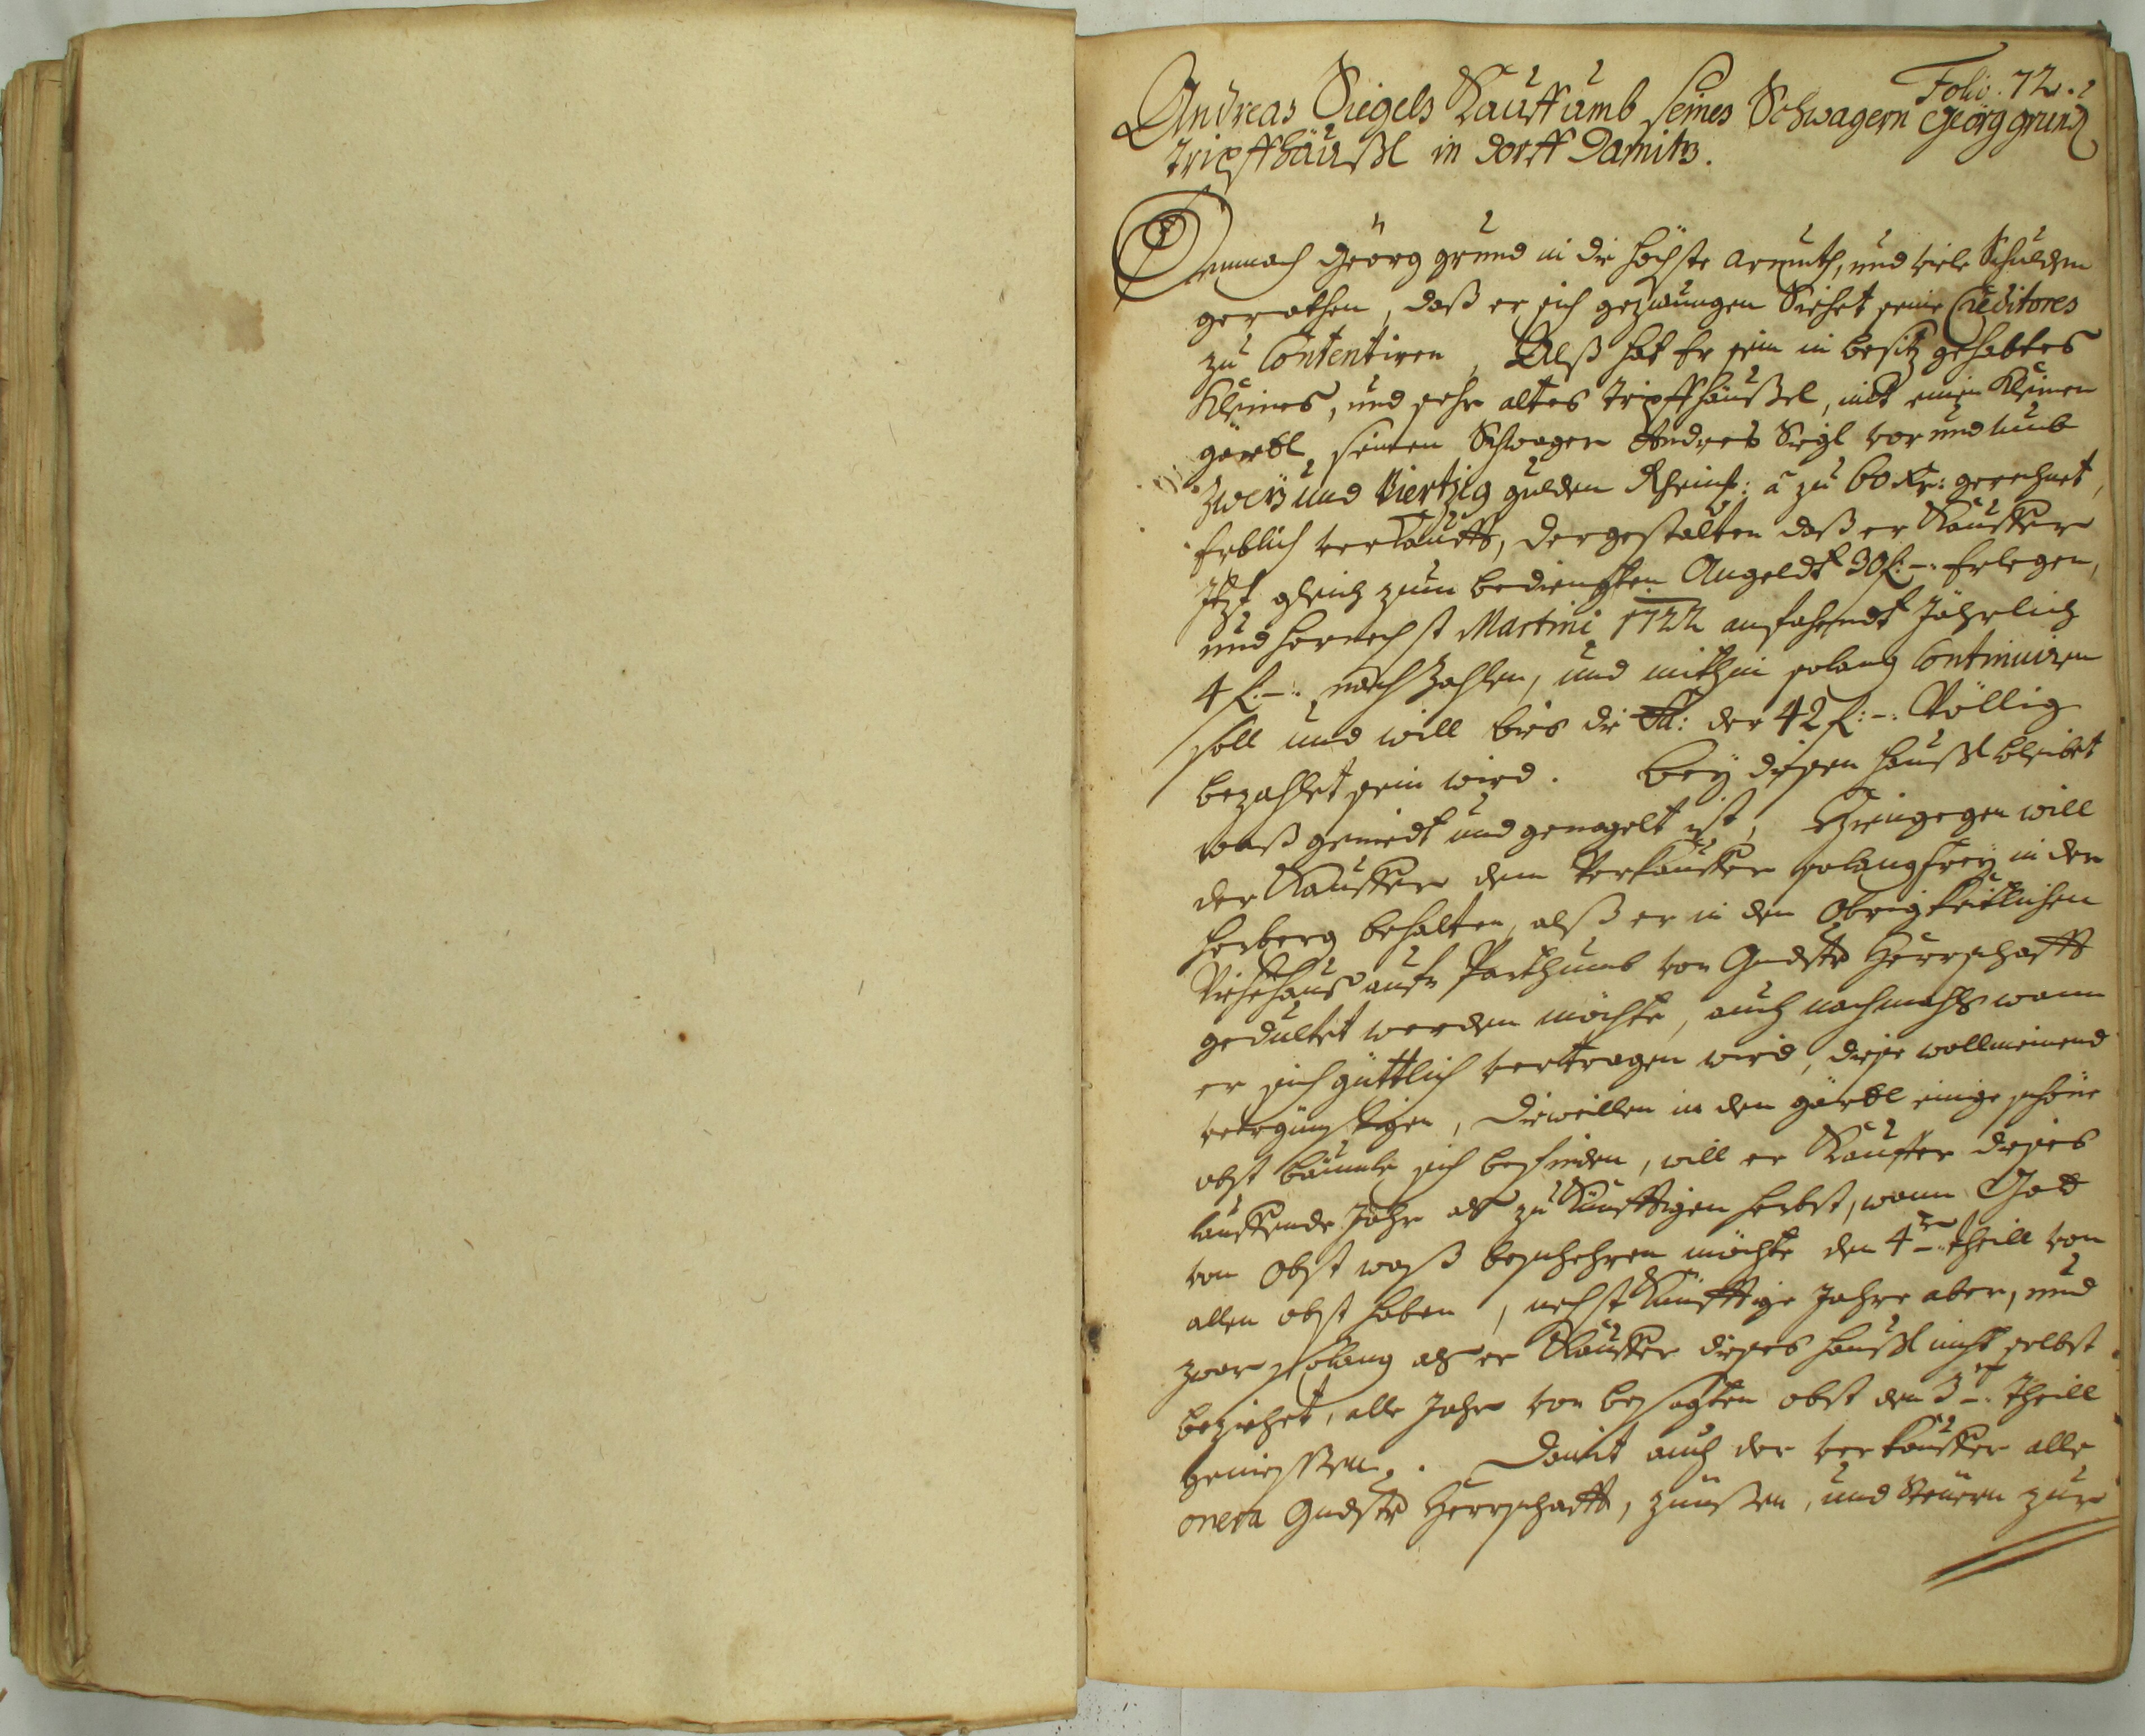 Folio. 72.
Andreas Siegels Kauff umb seines Schwagern Geörg grund
tripffhäußl in dorff Damitz.
Demnach Geörg grund in die höchste armuth, und viele Schulden
gerathen, daß er sich gezwungen Siehet seine Creditores
zu Contentiren, Alß hat Er sein in besitz gehabtes
Kleines, und sehr altes tripffhäußel, mit einen Kleinen
gärtl seinen Schwager Andres Sigl vor und umb
Zweÿ und Viertzig gulden Rheinl: à zu 60 Kr: gerechnet,
Erblich verkaufft, dergestalten daß er Kauffer
Itzt gleich zum bedingten Angeldt 30 f:-: Erlegen,
und hernechst Martini 1722 anfahendt Jährlich
4 f:-: nach Zahlen, und mithin solang Continuiren
soll und will bis die Sa: der 42 f:-: Völlig
bezahlet sein wird. Beÿ disen häußl bleibet
waß geniedt und genagelt ist, Hingegen will
der Kauffer dem Verkauffer solang freÿ in der
Herberg behalten, alß er in den Obrigkeitlichen
Viehhauß aufn von Gndste Herrschafft
gedultet werden möchte, auch nachmahls wann
er sich güttlich vertragen wird, diese wollmeinend
vergünstigen, dieweillen in den gärtl einige schöne
obst bäumle sich befinden, will er Kauffer dises
lauffende Jahr als zu Künfftigen herbst, wann Gott
von Obst waß beschehren möchte den 4ten theill von
allen obst haben, nechst Künfftige Jahre aber, und
zwar solang als er Kauffer dises häußl nicht selbst
beziehet, alle Jahr von besagten obst den 3ten Theill
geniessen. Damit auch der verkauffer alle
onera Gndste Herrschafft, zünßen, und Steuern zur